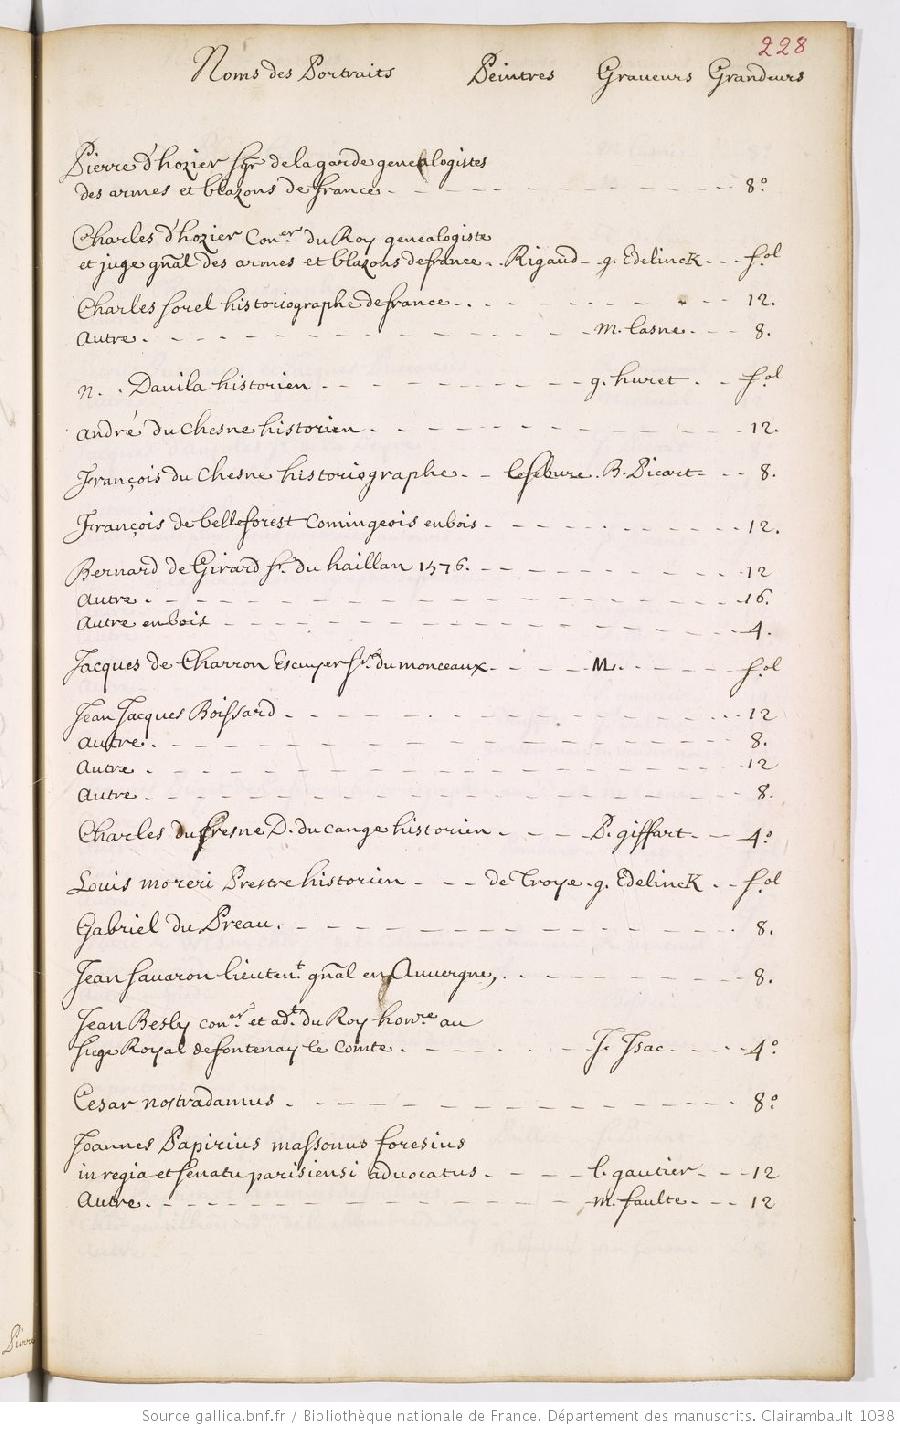 228
Noms des Portraits Peintres Graveurs Grandeurs
Pierre d'hozier sgr de la garde genealogistes
des armes et blazons de france - - - - - 8°
Charles d'hozier Con.er du Roy genealogiste
et juge gnãl des armes et blazons de france. Rigaud - g. Edelinck - - - f.ol
Charles sorel historiographe de france - - - - 12.
autre - - - - - m. lasne - - - 8.
n. . Davila historien - - - - - g. huret - - f.ol
andré du Chesne historien - - - - 12.
François du Chesne historiographe - - lefebure. B. Picart - - 8.
François de belleforest Comingeois en bois - - - - 12.
Bernard de Girard sr. du haillan 1576. - - - - 12
autre - - - - - 16.
autre en bois - - - - - 4.
Jacques de Charron Escuyer sr. du monceaux - - - M. - - - f.ol
Jean Jacques Boissard - - - - - 12
autre - - - - - 8.
autre - - - - - 12
autre - - - - - 8.
Charles du fresne D. du cange historien - - - P. giffart - - 4°
Louis moreri Prestre historien - - - de Troye - g. Edelinck - - f.ol
Gabriel du Preau. - - - - - 8.
Jean savaron lieuten.t gnãl en Auvergne, - - - - 8.
Jean Besly con.er et ad.t du Roy hon.re au
siege Royal de fontenay le Comte - - - - J. Isac - - - 4°
Cesar nostradamus - - - - - 8°
Joannes Papirius massonus foresius
in regia et senatu parisiensi advocatus - - - l. gautier - - 12
autre - - - - - m. faulte - - - 12
Pierre
Source gallica.bnf.fr / Bibliothèque nationale de France. Département des manuscrits. Clairambault 1038